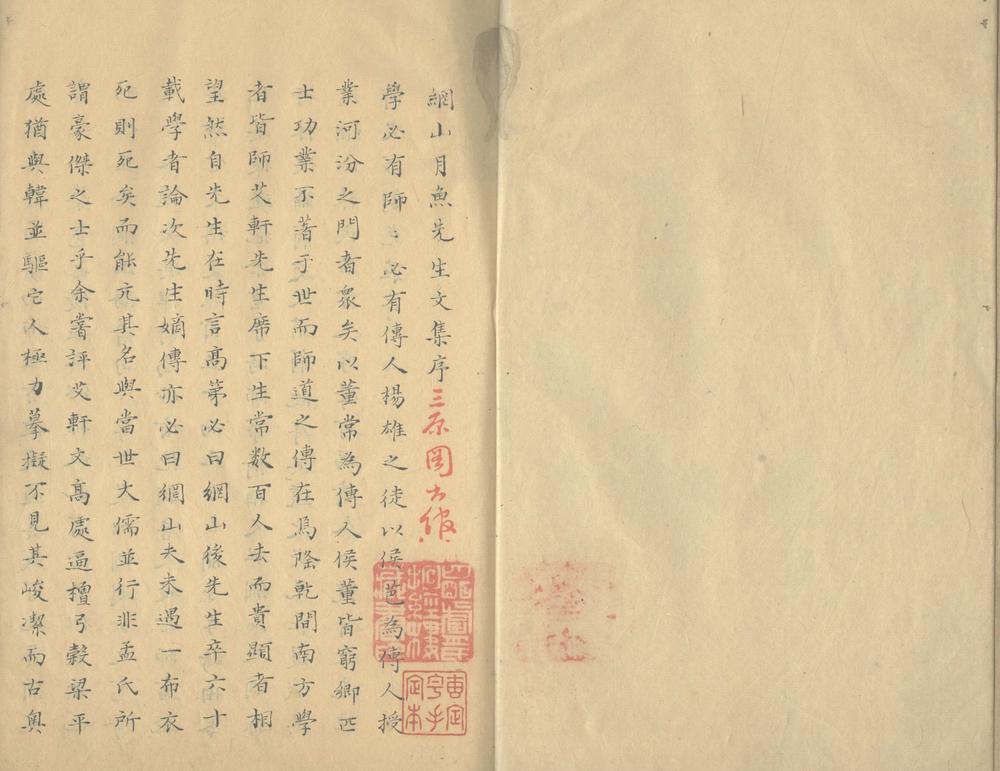 網山月魚先生文集序
學必有師〻必有傳人楊雄之徒以侯芭為傳人授
業河汾之門者衆矣以董常為傳人侯董皆窮鄉匹
士功業不著于世而師道之傳在焉隆乾間南方學
者皆師艾軒先生席下生常数百人去而貴顯者相
望然自先生在時言髙第必曰網山後先生卒六十
載學者論次先生嫡傳亦必曰網山夫未遇一布衣
死則死矣而能亢其名與當世大儒並行非孟氏所
謂豪傑之士乎余嘗評艾軒文髙處逼檀弓穀梁平
處猶與韓並驅它人極力摹擬不見其峻潔而古奥